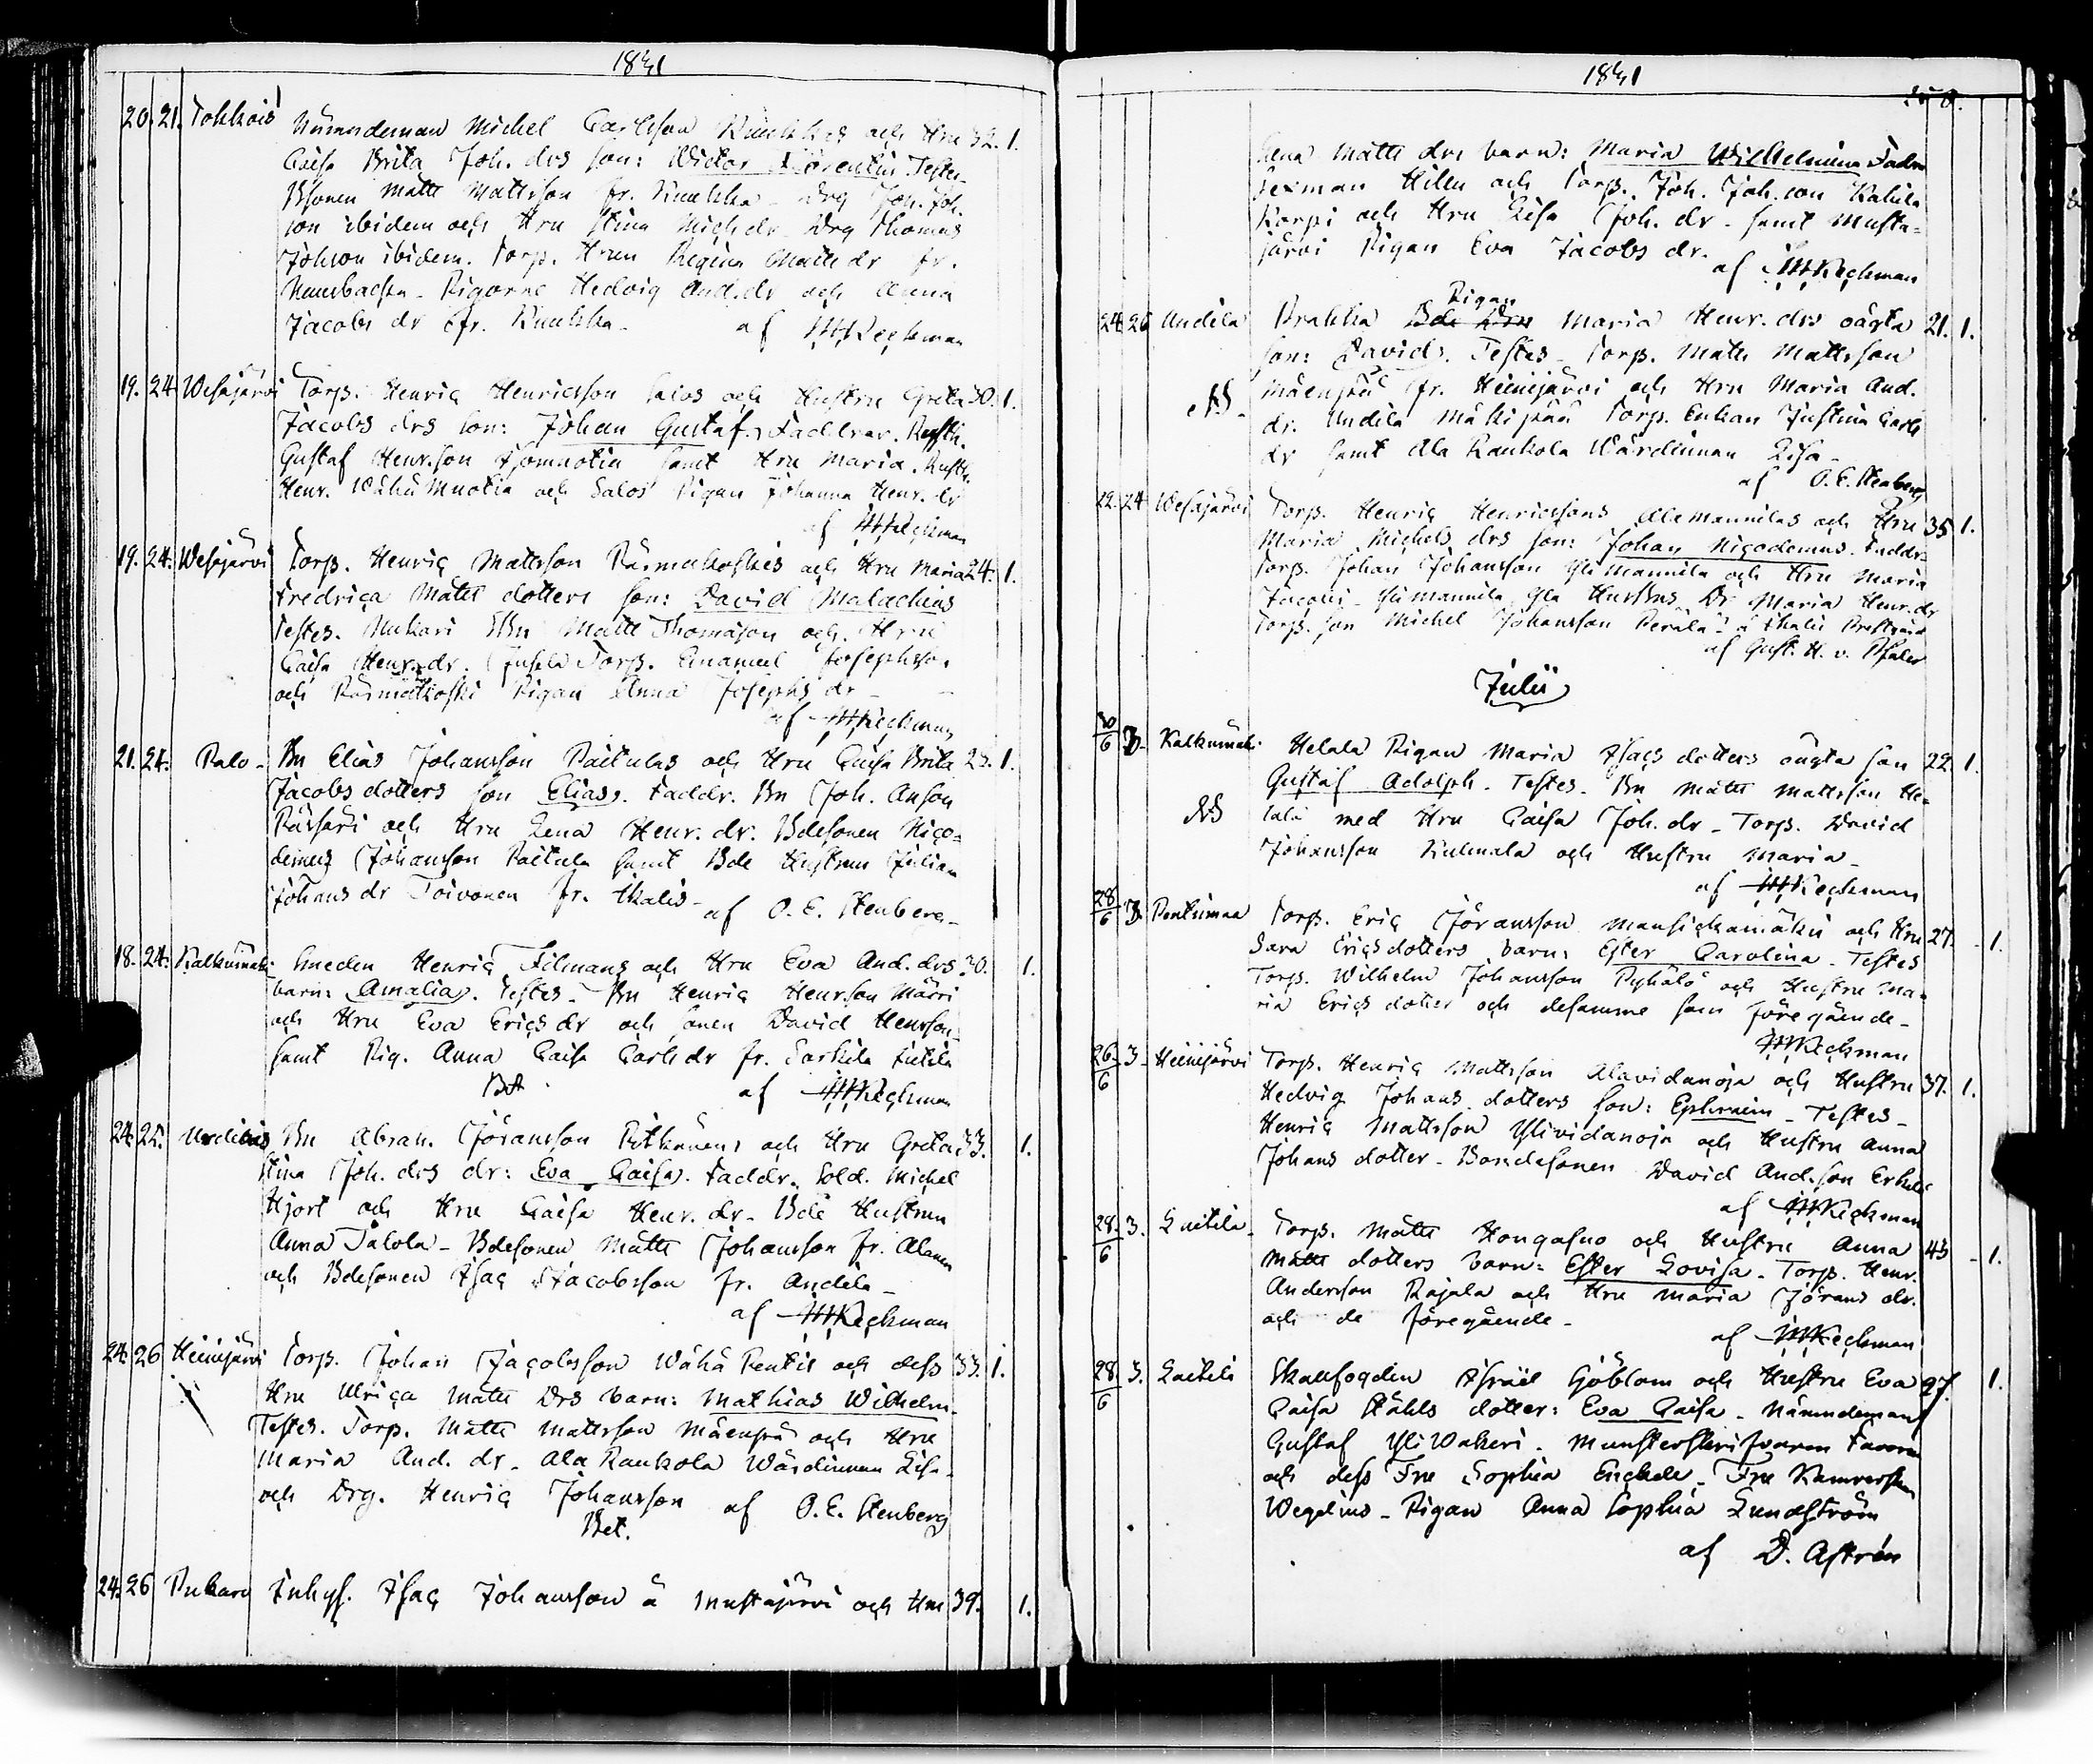 1841
20. 21. Tokkois Nämndeman Michel Carlsson Kuukkas och Hru 32. 1.
Caisa Brita Joh. drs son: Victor Florentin Testes
Bsonen Matts Mattsson fr. Kuukka - Drg Joh. Joh.
son ibidem och Hru Stina Mich dr. Drg Thomas
Johson ibidem. Torp. Hrun Regina Matts dr fr.
Pigorne Hedvig And. dr och Anna
Jacobs dr fr. Kuukka - af Reckman
19. 24. Wesajärvi Torp. Henric Henricsson Salos och Hustru Greta 30. 1.
Jacobs drs son: Johan Gustaf. Faddrar. Rusth.
Gustaf Henr.son Isomuotia samt Hru Maria. Rusth.
Henr. Wähä Muotia och Salos Pigan Johanna Henr. dr
af Reckman
19. 24. Wesajärvi Torp. Henric Mattsson Räsmäkoskis och Hru Maria 24. 1.
Fredrica Matts dotters son: David Malachias
Testes. Mukari Bn Matts Thomasson och Hru
Caisa Henr. dr. Jusela Torp. Emanuel Josephsson
och Räsmäkoski Pigan Anna Josephs dr -
af Reckman
21. 24. Palo - Bn Elias Johansson Paitulas och Hru Caisa Brita 25. 1.
Jacobs dotters son Elias. Faddr. Bn Joh. Anson
Pässäri och Hru Lena Henr. dr. Bdesonen Nico-
demus Johansson Paitula samt Bde Hustrun Julian
Johans dr Toivonen fr. Ikalis - af O. E. Stenberg -
18. 24. Kalkunmäki Smeden Henric Filmans och Hru Eva And. drs 30. 1.
barn: Amalia. Testes - Bn Henric Henrson Märri
och Hru Eva Erics dr och sonen David Henrson
samt Pig. Anna Caisa Carls dr fr. Sarkila
Bet af Reckman
24. 25. Bn Abrah. Jöransson Pitkänens och Hru Greta 33. 1.
Stina Joh. drs dr: Eva Caisa. Faddr. Sold. Michel
Hjort och Hru Caisa Henr. dr - Bde Hustrun
Anna Talola - Bdesonen Matts Johansson fr. Alanen
och Bdesonen Isac Jacobsson fr. Andila -
af Reckman
24. 26 Heinijärvi Torp. Johan Jacobsson Wähä Pentis och dess 33. 1.
Hru Ulrica Matts Drs barn: Mathias Wilhelm.
Testes. Torp. Matts Mattsson Mäenpää och Hru
Maria And. dr - Ala Raukola Wärdinnan Lisa -
och Drg. Henric Johansson af O. E. Stenberg
Bet.
24. 26 Pukara Inhys. Isac Johansson ä Mustajärvi och Hru 39. 1.
1841
Lena Matts drs barn: Maria Wilhelmina Faddr
Sexman Hilen och Torp. Joh. Joh. son
Korpi och Hru Lisa Joh. dr - samt Musta-
järvi Pigan Eva Jacobs dr. af Reckman
Pigan
24. 26 Undila Prakka Bde Drs Maria Henr. drs oägta 21. 1.
son: David. Testes - Torp. Matts Mattsson
Mäenpää fr. Heinijärvi och Hru Maria And.
dr. Undila Mäkipää Torp. Enkan Justina Carls
dr samt Ala Raukola Wärdinnan Lisa -
af O. E. Stenberg
22. 24 Wesajärvi Torp. Henric Henricssons Alamannilas och Hru 35 1.
Maria Michels drs son: Johan Nicodemus. Faddr.
Torp. Johan Johansson Ylimannila och Hru Maria
Jacobs - Ylimannila Dr Maria Henr. dr
Torp. son Michel Johansson Perälä
af Gust. H. v. Pfaler
Julii
30/6 3. Kalkunmäki Helala Pigan Maria Isacs dotters oägta son 22. 1.
Gustaf Adolph. Testes. Bn Matts Mattsson He-
lala med Hru Caisa Joh. dr - Torp. David
Johansson Kulmala och Hustru Maria -
af Reckman
28/6 3. Pentinmaa Torp. Eric Jöransson Mansickamäki och Hru 27. 1.
Sara Ericsdotters barn: Ester Carolina - Testes
Torp. Wilhelm Johansson Pyhältö och Hustru Ma-
ria Erics dotter och desamme som föregående -
Reckman
26/6 3. Heinijärvi Torp. Henric Mattsson Alavidanoja och Hustru 37. 1.
Hedvig Johans dotters son: Ephraim - Testes -
Henric Mattsson Ylividanoja och Hustru Anna
Johans dotter - Bondesonen David And. son Erkilä
af Reckman
28/6 3. Luitila - Torp. Matts Hongasuo och Hustru Anna 43 1.
Matts dotters barn: Ester Lovisa - Torp. Henr.
Andersson Rajala och Hru Maria Jörans dr.
och de föregående -
af Reckman
28/6 3. Luitila Skallfogden Israel Sjöblom och Hustru Eva 27. 1.
Caisa Ståhls dotter: Eva Caisa - Nämndeman
Gustaf Yli Wakeri. Munsterskrifvaren
och dess Fru Sophia Enckele - Fru
Wegelius - Pigan Anna Sophia Lundström
af D. Astrén